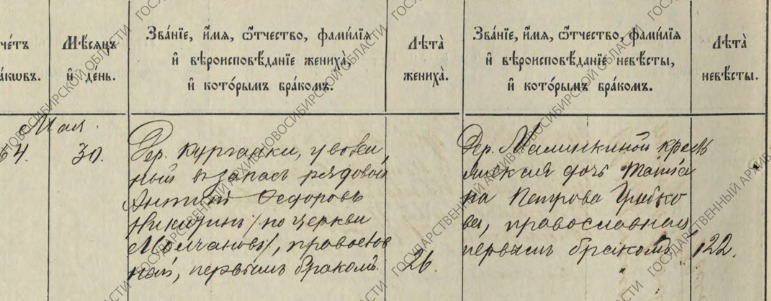 счетъ
браковъ.
Мѣсяцъ
и день.
Званіе, имя, отчество, фамилія
и вѣроисповѣданіе жениха,
и которымъ бракомъ.
Лѣта
жениха.
Званіе, имя, отчество, фамилія
и вѣроисповѣданіе невѣсты,
и которымъ бракомъ.
Лѣта
невѣсты.
Мая.
30.
Дер. Курганки, уволен
ный в запас рядовой
Антипъ Ѳедоровъ
Никитинъ / по церкви
Молчановъ /, православ
ный, первымъ бракомъ.
26.
Дер. Мамушкиной крест
янская дочь Татіа
на Петрова Грибко
ва, православная
первымъ бракомъ.
22.
ГОСУДАРСТВЕННЫЙ АРХИВ НОВОСИБИРСКОЙ ОБЛАСТИ